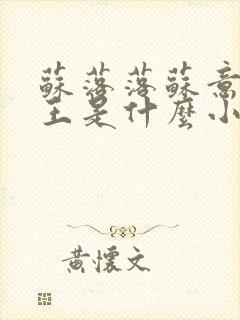 蘇落落蘇意
主是什麼小
黃懷文